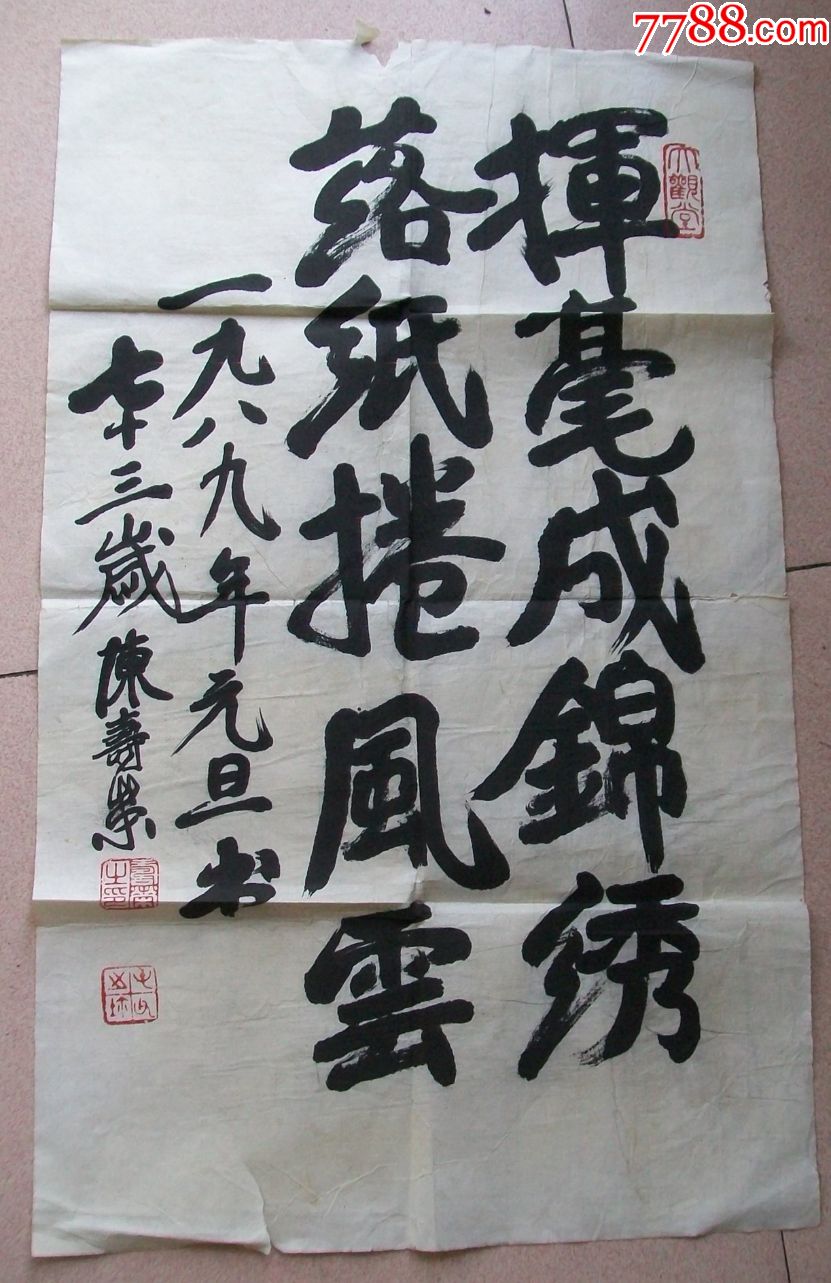 7788.com
大觀堂
揮毫成錦绣
落紙捲風雲
一九八九年元旦书
七十三歲陳壽荣